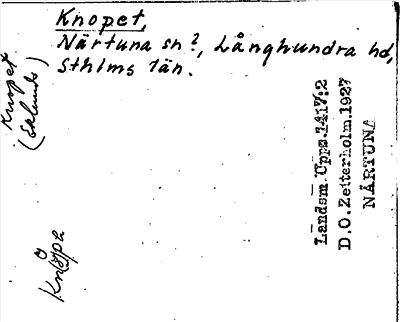 Knopet,
Närtuna sn?, Långhundra hd,
Sthlms län.
Knopet
(Eklunds)
Landsm. Upps. 1417:2
D.O. Zetterholm. 1927
NÄRTUNA